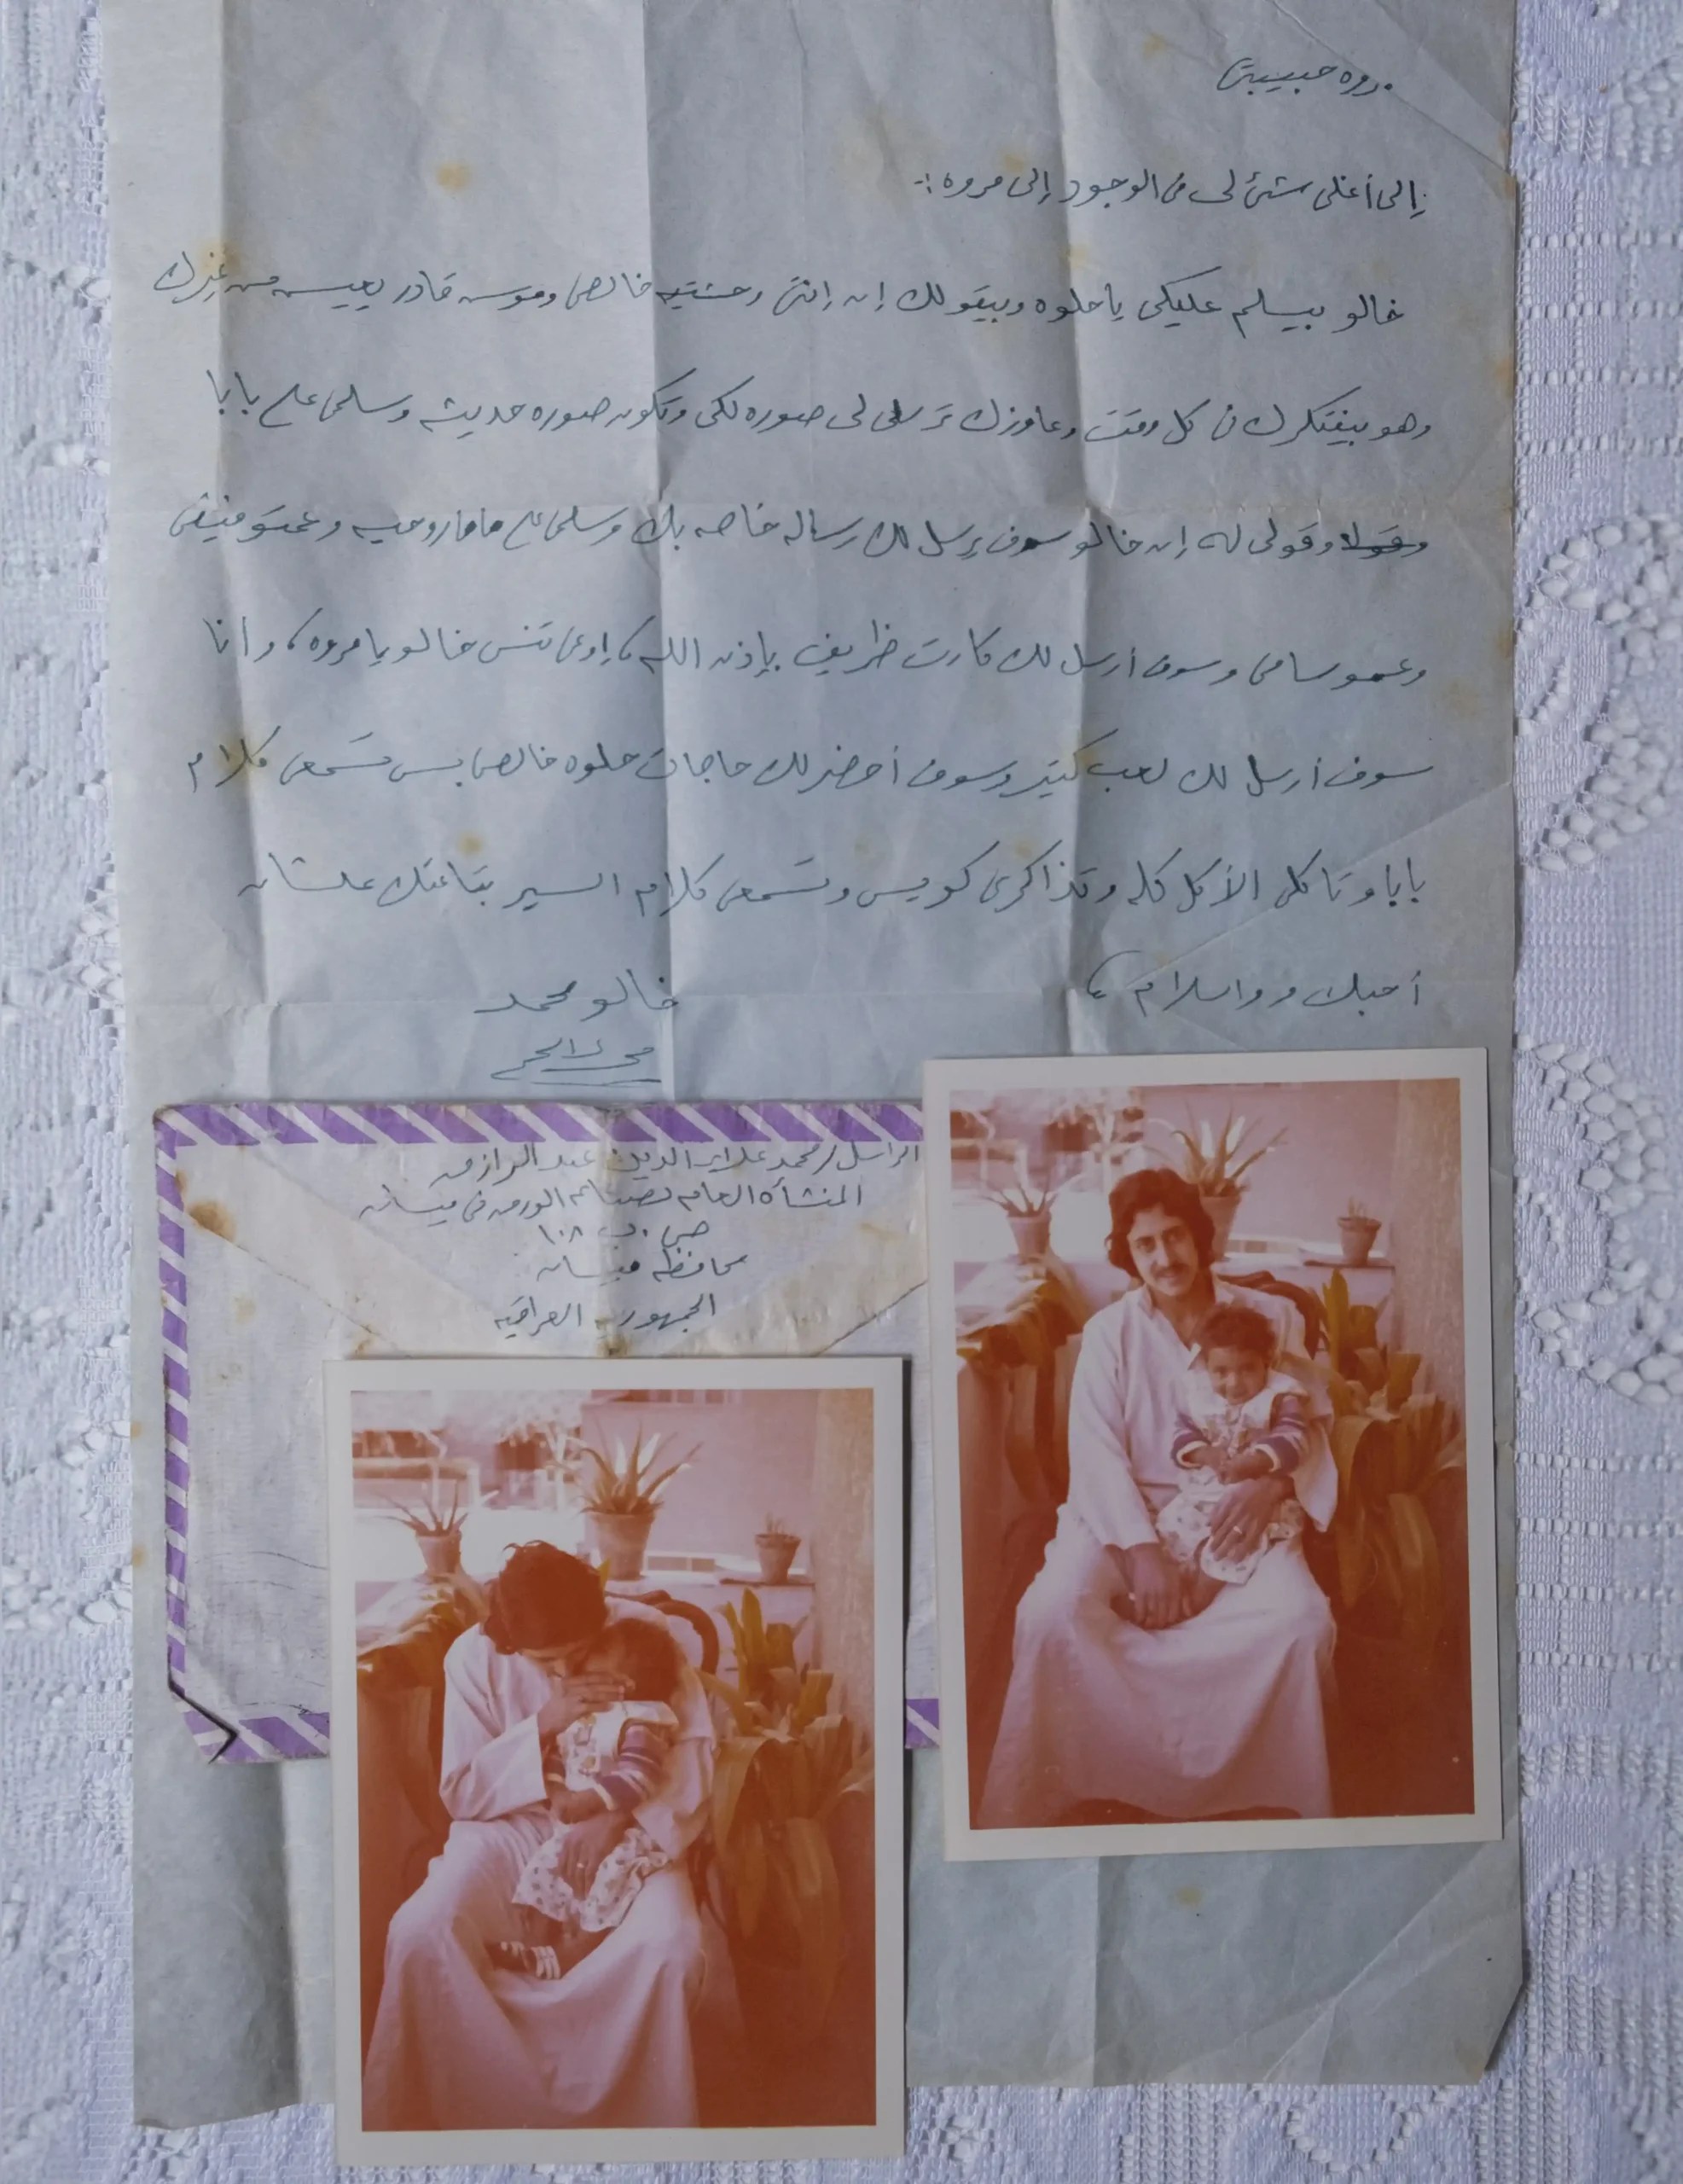 مروه حبيبتى
إلى أغلى شئ لى فى الوجود إلى مروه :-
خالو بيسلم عليكى يا حلوه وبيقولك إن إنتى وحشتيه خالص وموسه قادر يعيسه من غيرك
وهو بيفتكرك فى كل وقت وعاوزك ترسلى لى صوره لكى وتكون صوره حديثه وسلمى على بابا
وقولى له إن خالو سوف يرسل لك رساله خاصه بك وسلمى على ماما روحيه وعمتو
وعمو سامى وسوف أرسل لك كارت ظريف بإذن الله، إوعى تنسى خالو يا مروه، وأنا
سوف أرسل لك لعب كتير وسوف أحضر لك حاجات حلوه خالص بس تسمعى كلام
بابا وتاكلى الأكل كله وتذاكرى كويس وتسمعى كلام الميس بتاعتك علشان
أحبك والسلام،
خالو محمد
الراسل/ محمد علاء الدين عبد الرازق
المنشأة العامه لصناعه الورق فى ميسان
ص . ب ١٠٨
محافظه ميسان
الجمهوريه العراقيه